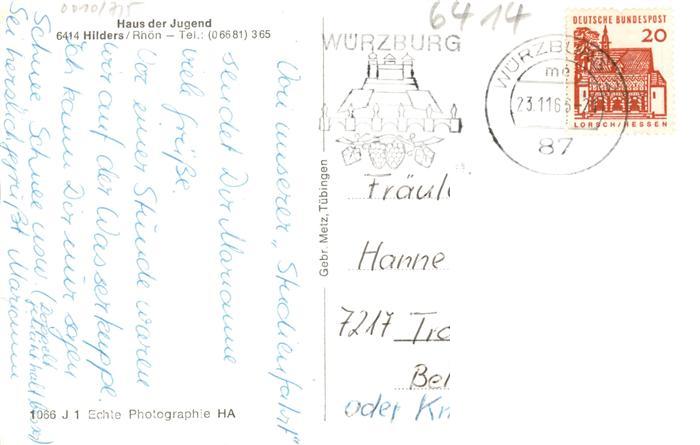 0010/715
Haus der Jugend
6414 Hilders/Rhön – Tel.: (06681) 365
Von unserer „Studienfahrt"
sendet Dir Marianne
viele Grüße.
Vor einer Stunde waren
wir auf der Wasserkuppe.
Ich kann Dir nur sagen
Schnee Schnee usw. (
Sei herzlich gegrüßt Marianne
1066 J 1 Echte Photographie HA
Gebr. Metz, Tübingen
6414
WÜRZBURG
WÜRZBU
23.11.6
87
DEUTSCHE BUNDESPOST
20
LORSCH/HESSEN
Fräul
Hanne
7217 Tro
Bei
oder Kn